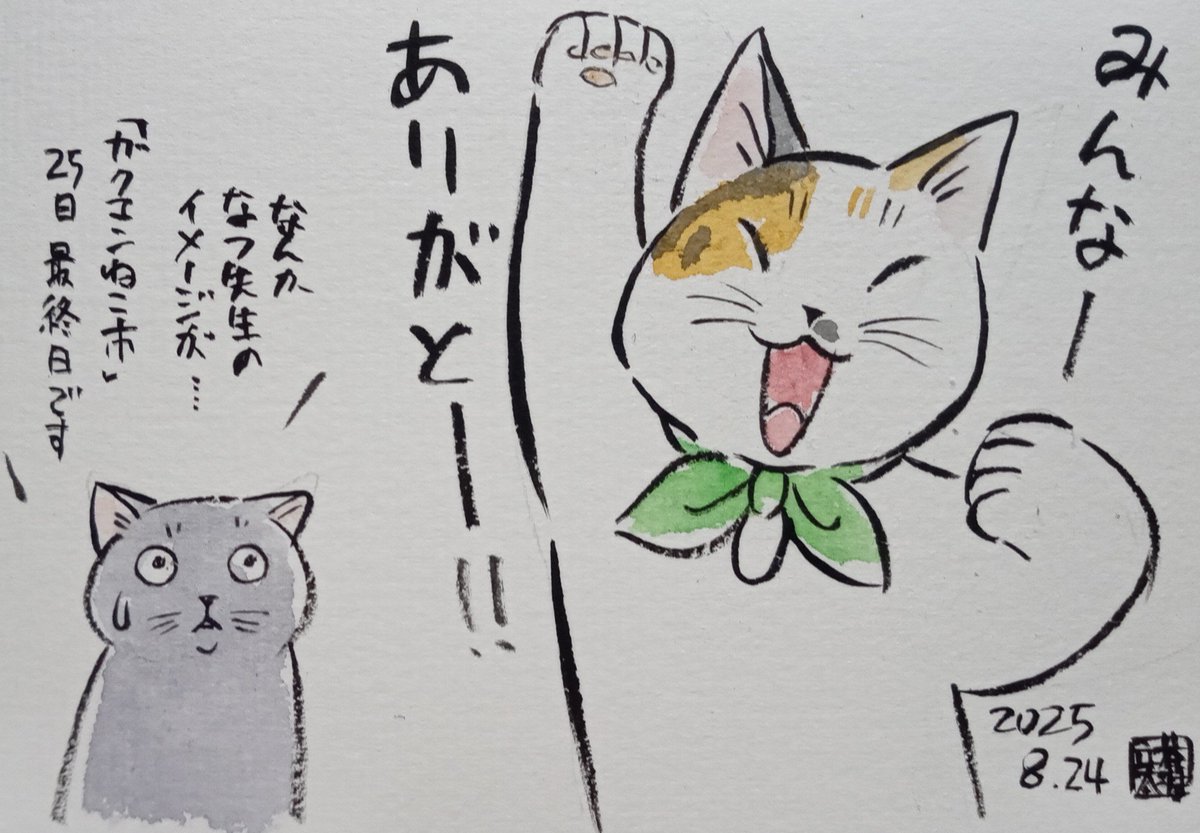 みんなー
ありがとー!!
なんか
なつ先生の
イメージが…
「ガクエンねこ市」
25日 最終日です
2025
8.24